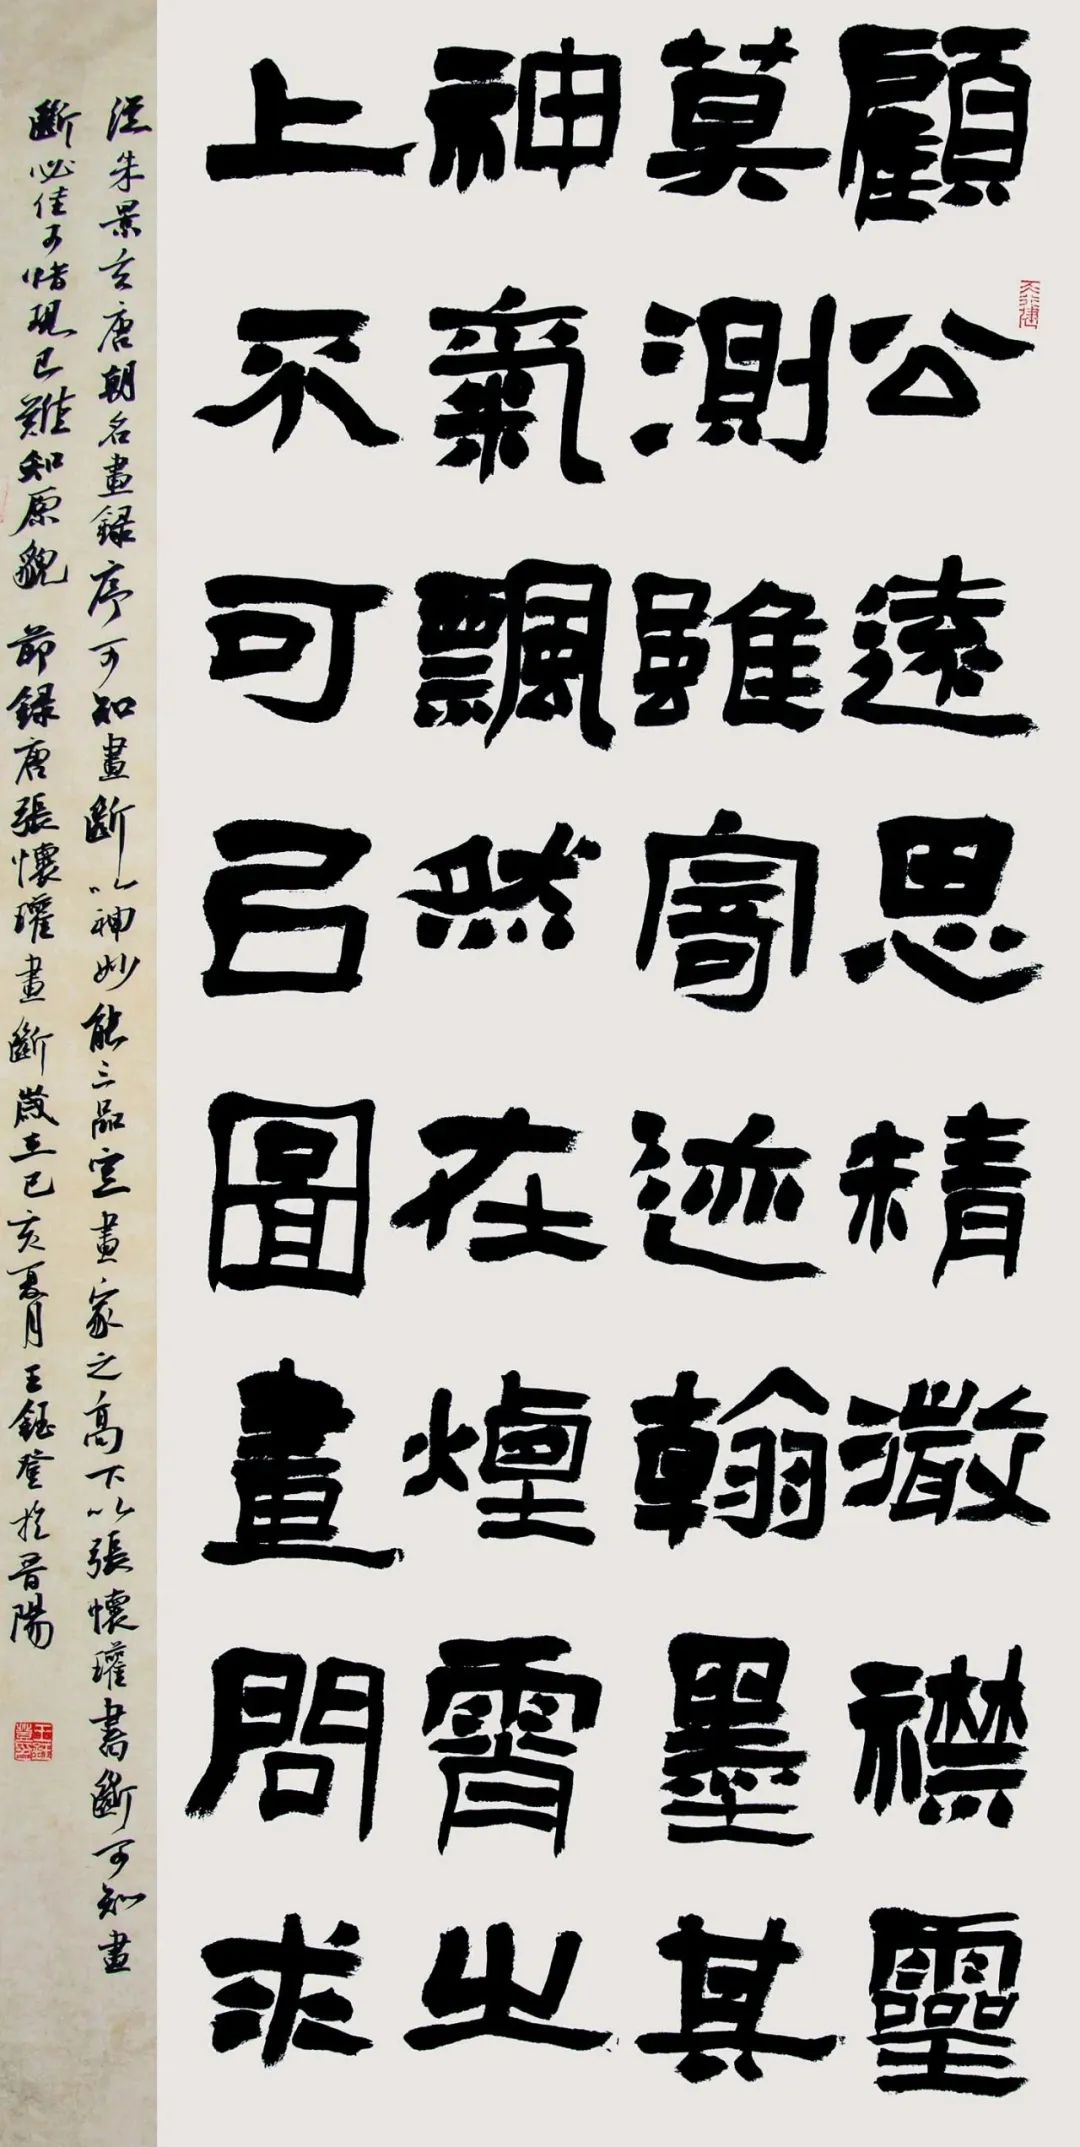 顧公遠思精澂襟靈
莫測雖寄迹翰墨其
神氣飄然在煙霄之
上不可㠯圖畫間求
從朱景玄唐朝名畫錄序可知畫斷以神妙能三品定畫家之高下以張懷瓘書斷可知畫
斷必佳可惜現已難知原貌 節録唐張懷瓘畫斷歲在己亥夏月王鈺登於晉陽
天行健